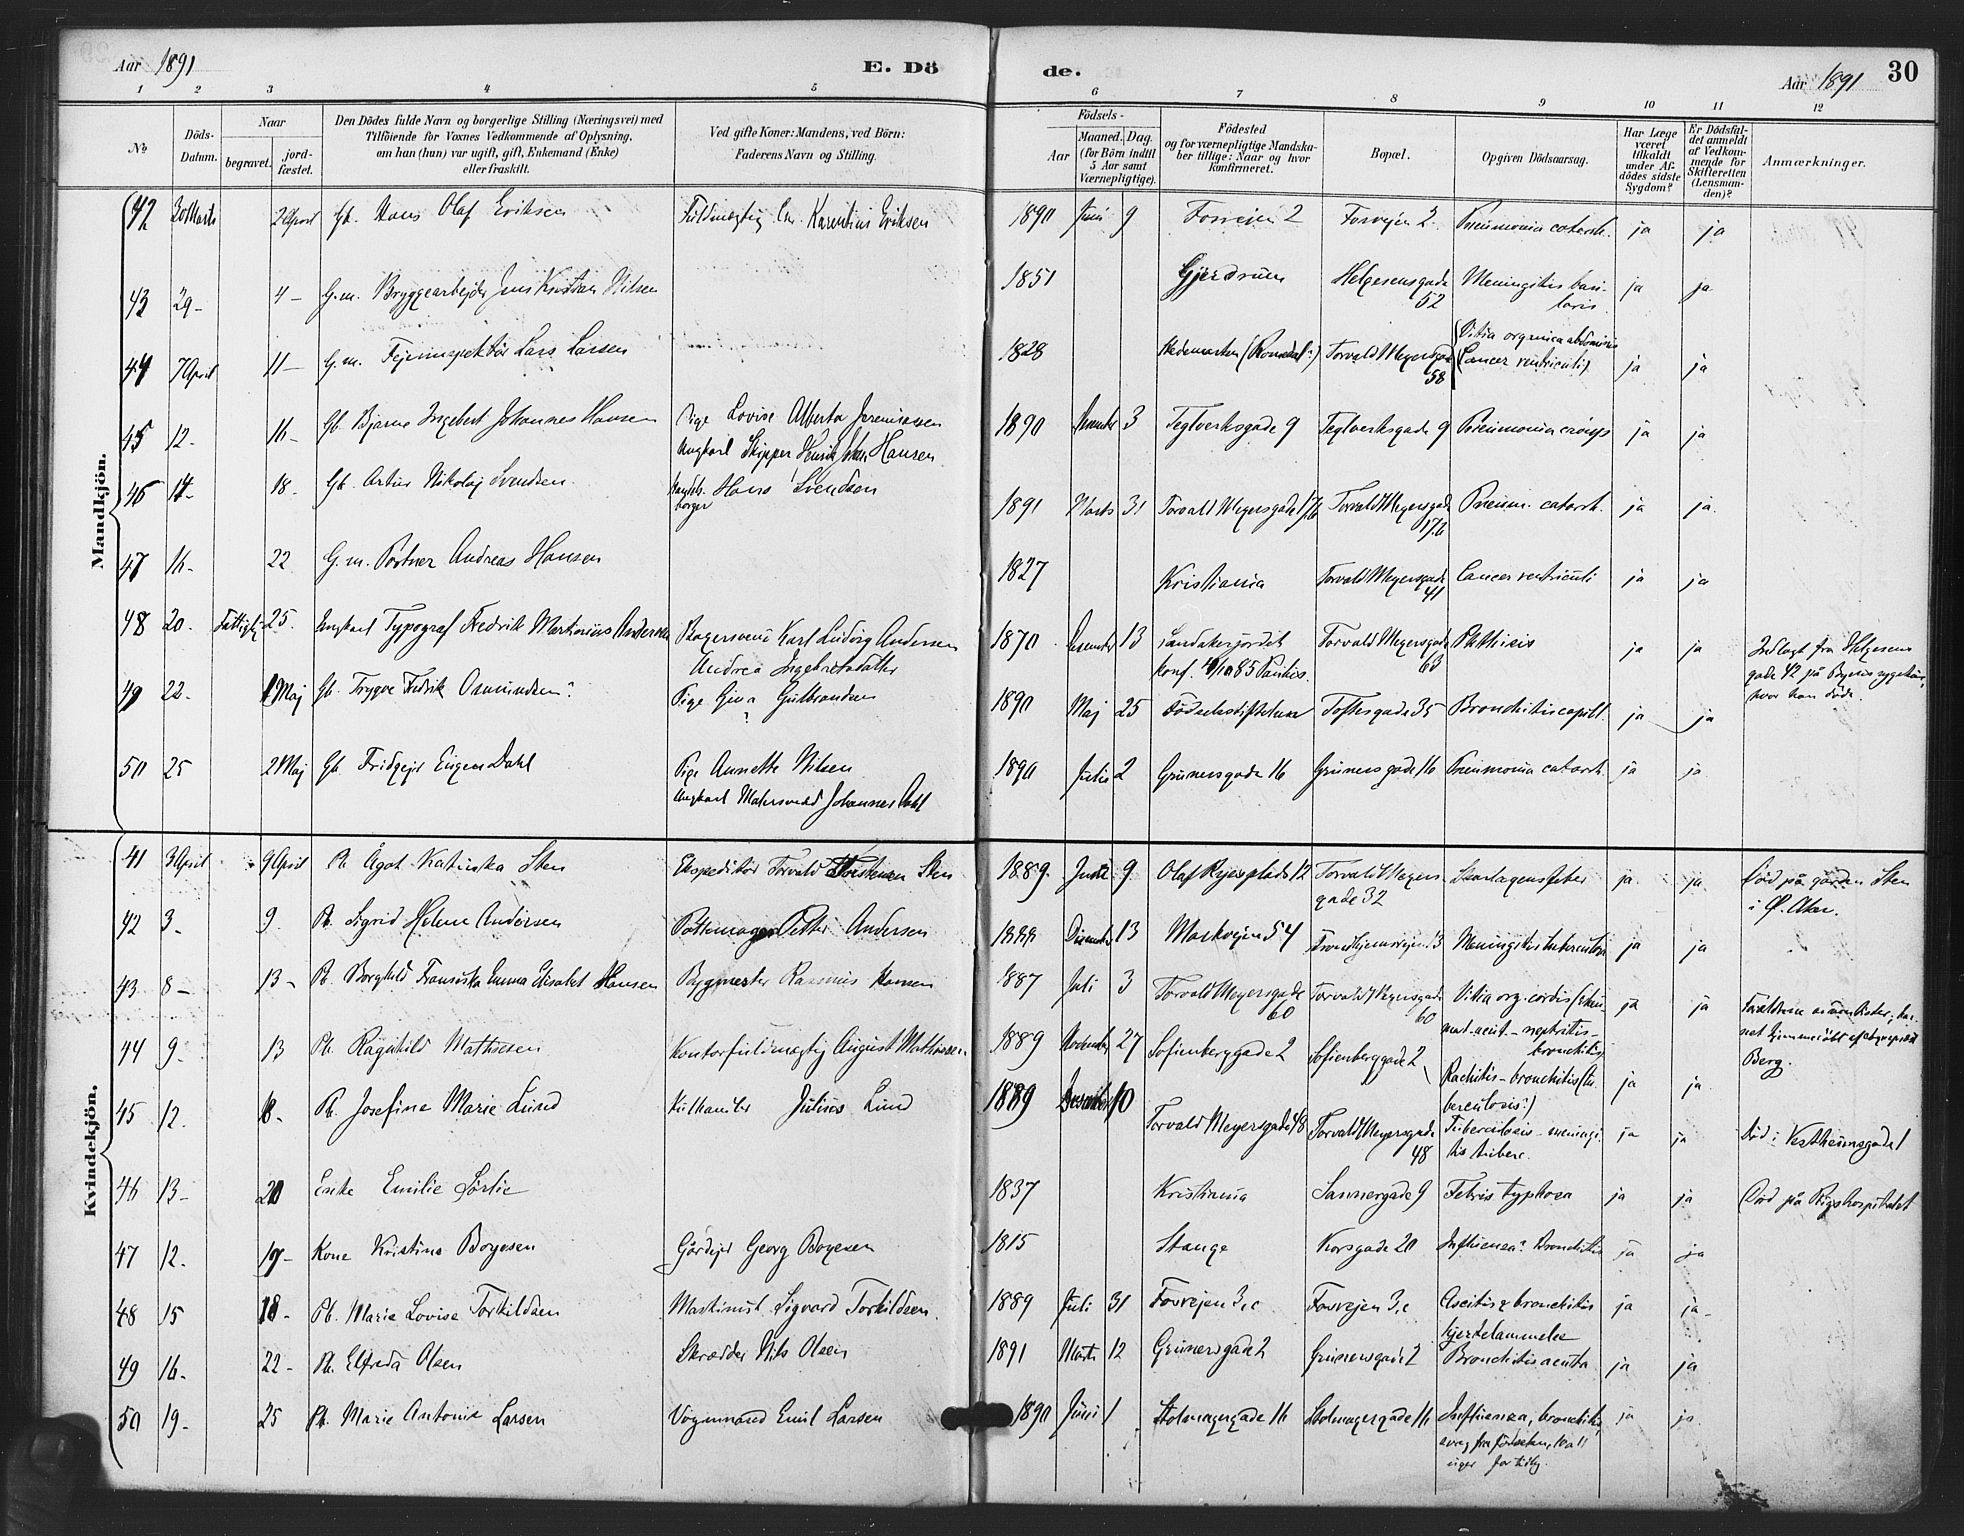 Aar 1891
E. Dö
de.
Aar 1891
30
1 2 3 4 5 6 7 8 9 10 11 12
No
Döds-
Datum.
Naar
begravet.
jord-
fæstet.
Den Dödes fulde Navn og borgerlige Stilling (Næringsvei) med
Tilföiende for Voxnes Vedkommende af Oplysning,
om han (hun) var ugift, gift, Enkemand (Enke)
eller fraskilt.
Ved gifte Koner: Mandens, ved Börn:
Faderens Navn og Stilling.
Födsels-
Aar
Maaned. Dag.
(for Börn indtil
5 Aar samt
Værnepligtige).
Födested
og for værnepligtige Mandska-
ber tillige: Naar og hvor
konfirmeret.
Bopæl.
Opgiven Dödsaarsag.
Har Læge
været
tilkaldt
under Af-
dödes sidste
Sygdom?
Er Dödsfal-
det anmeldt
af Vedkom-
mende for
Skifteretten
(Lensman-
den)?
Anmærkninger.
Mandkjön.
42 30 Marts 2 April Gb. Hans Olaf Eriksen Fuldmægtig Karentius Eriksen 1890 Juni 9 Fosvejen 2 Fosvejen 2. Pneumonia catarrh. ja ja
43 29- 4- G.m. Bryggearbejder Jens Kristian Nilsen 1851 Gjerdrum Helgesensgade
52 Meningitis basi-
laris ja ja
44 7 April 11- G.m. Fejerinspektör Lars Larsen 1828 Hedemarken (Romedal?) Torvald Meyersgade
58 Vitia organica abdominis
(Cancer ventriculi) ja ja
45 12- 16- Gb. Bjarne Ingebert Johannes Hansen Pige Lovise Alberta Jeremiassen
Ungkarl Skipper Henrik Johan Hansen 1890 Desember 3 Teglverksgade 9 Teglverksgade 9 Pneumonia croups ja ja
46 14- 18- Gb. Artur Nikolaj Svendsen Handels-
borger Hans Svendsen 1891 Marts 31 Torvald Meyersgade 17b Torvald Meyersgade
17b Pneum. catarrh. ja ja
47 16- 22 G.m. Portner Andreas Hansen 1827 Kristiania Torvald Meyersgade
41 Cancer ventriculi ja ja
48 20- 25- Ungkarl Typograf Fredrik Martinius Andersen Bagersvend Karl Ludvig Andersen
Andrea Ingebretsdatter 1870 Desember 13 Sandakerjordet
konf. 4/10 85 Paulus. Torvald Meyersgade
63 Phthisis ja ja Indlagt fra Helgesens
gade 42 på Byens sygehus,
hvor han döde.
49 22- 1 Maj Gb. Trygve Fredrik Osmundsen? Pige Gina Gulbrandsen 1890 Maj 25 Födselsstiftelsen Toftesgade 35 Bronchitis capill. ja ja
50 25 2 Maj Gb. Fridtjof Eugen Dahl Pige Annette Nilsen
Ungkarl Malersvend Johannes Dahl 1890 Julie 2 Grünersgade 16 Grünersgade 16 Pneumonia catarrh ja ja
Kvindekjön.
41 3 April 9 April Pb. Ågot Katinka Sten Ekspeditör Torvald Sten 1889 Juni 9 Olaf Ryesplads 12 Torvald Meyers
gade 32 Skarlagensfeber ja ja Död på gården Sten
i Ø. Aker.
42 3- 9. Pb. Sigrid Helene Andersen Pottemager Petter Andersen 1888 Desember 13 Markvejen 54 Trondhjemsvejen 13 Meningitis tuberculosa ja ja
43 8- 13- Pb. Borghild Fransiska Emma Elisabet Hansen Bygmester Rasmus Hansen 1887 Juli 3 Torvald Meyersgade
60 Torvald Meyersgade
60 Vitia org. cordis (rheu-
mat-acut- nephritis-
bronchitis ja ja
44 9- 13 Pb. Ragnhild Mathisen Kontorfuldmægtig August Mathisen 1889 November 27 Sofienberggade 2 Sofienberggade 2 Rachitis- bronchitis (tu-
berculosis?) ja ja Berg.
45 12- 18- Pb. Josefine Marie Lund Kulhandler Julius Lund 1889 Desember 10 Torvald Meyersgade 48 Torvald Meyersgade
48 Tuberculosis- meningi-
tis tuberc. ja ja Död i Vestheimsgade 1
46 13- 20 Enke Emilie Sörlie 1837 Kristiania Sannergade 9 Febris typhosa ja ja Död på Rigshospitalet
47 12- 19- Kone Kristine Boyesen Gårdejer Georg Boyesen 1815 Stange Korsgade 20 Influensa? Bronchitis ja ja
48 15 18- Pb. Marie Lovise Torkildsen Maskinist Sigvard Torkildsen 1889 Juli 31 Fosvejen 3,c Fosvejen 3,c Ascites & bronchitis
hjertelammelse ja ja
49 16- 22- Pb. Elfrida Olsen Skrædder Nils Olsen 1891 Marts 12 Grünersgade 2 Grünersgade 2 Bronchitis acuta ja ja
50 19- 25 Pb. Marie Antonie Larsen Vognmand Emil Larsen 1890 Juni 1 Stolmagergade 16 Stolmagergade 16 Influensa, bronchitis,
svag fra födselen, 10 a 11
uger for tidlig. ja ja